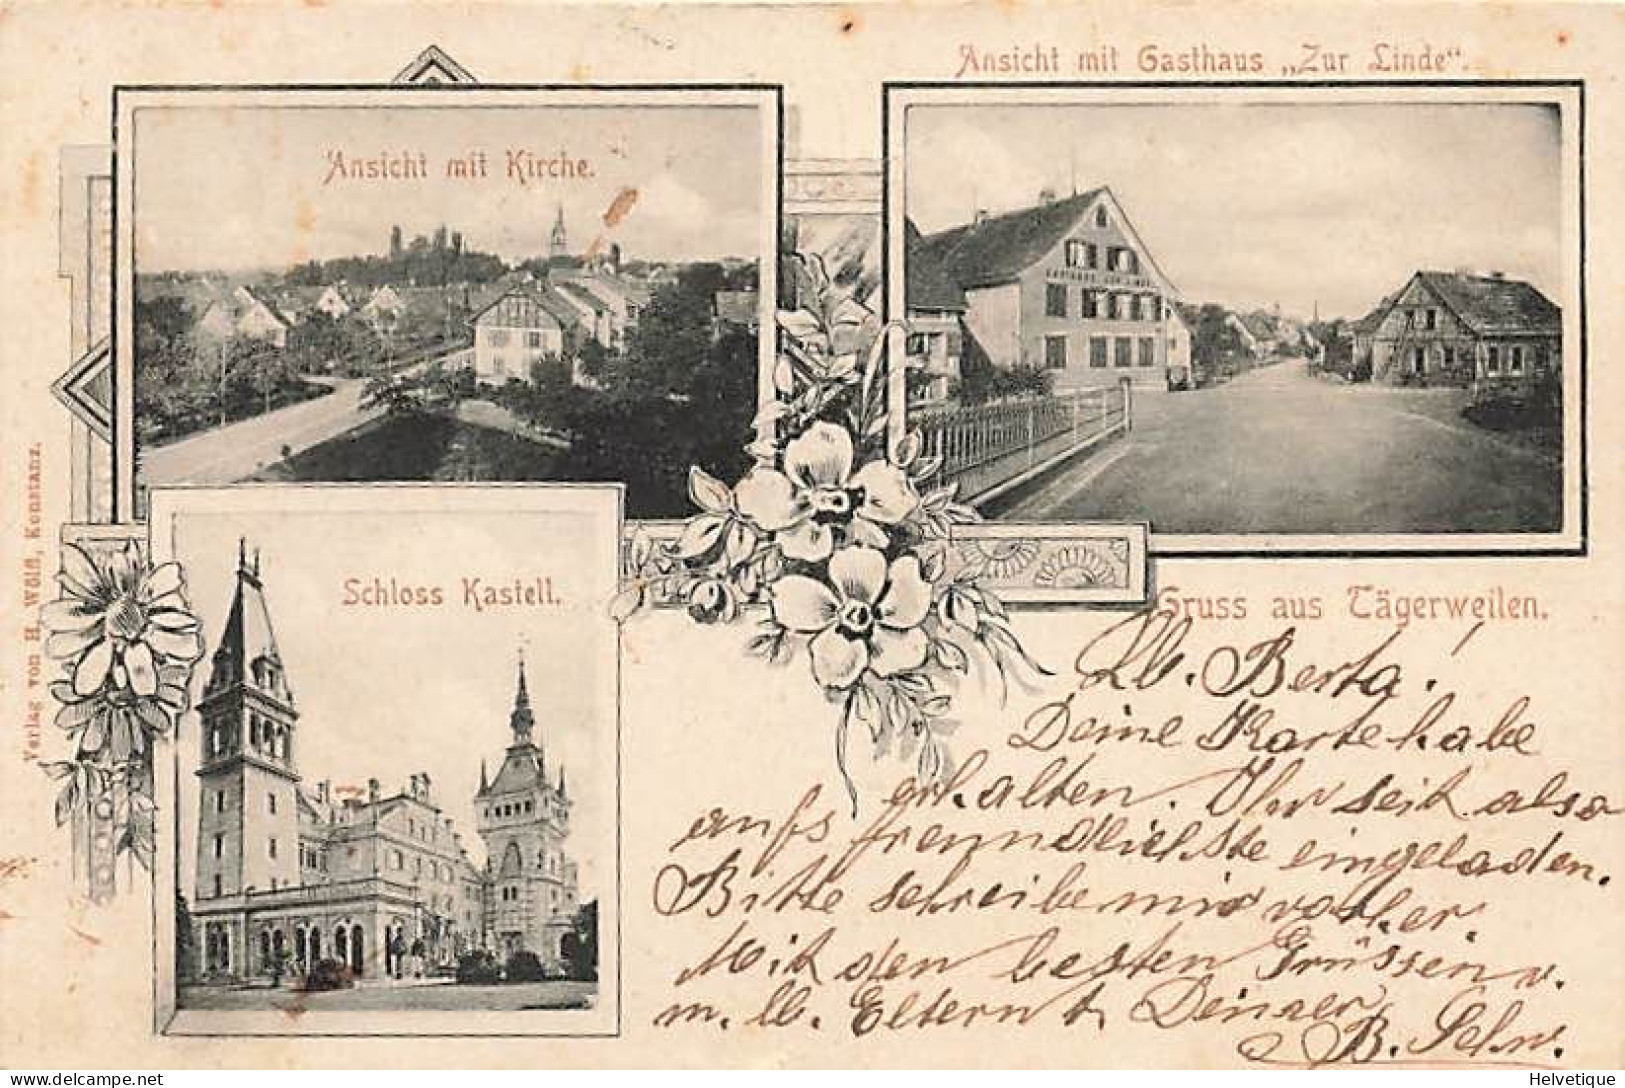 Ansicht mit Gasthaus „Zur Linde“.
Ansicht mit Kirche.
Schloss Kastell.
Gruss aus Tägerweilen.
Verlag von H. Wölfl, Konstanz.
Lb. Berta!
Deine Karte habe
erhalten. Ihr seit also
aufs freundlichste eingeladen.
Bitte schreibe mir vorher.
Mit den besten Grüssen v.
m. lb. Eltern &
B. Schw.
Helvetique